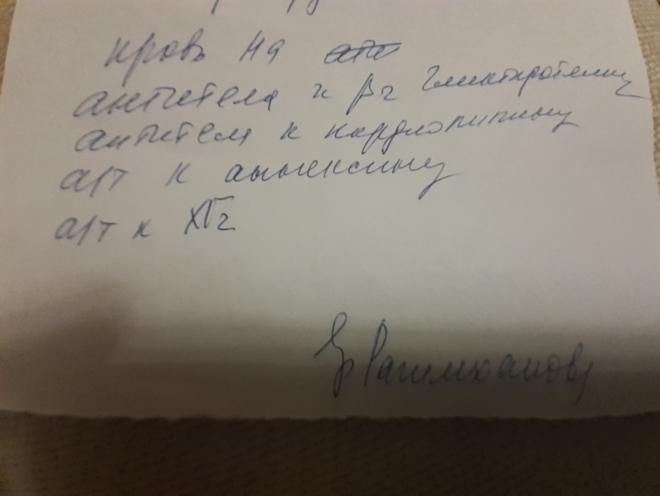 кровь на
антитела к β2 гликопротеину
антитела к кардиолипину
а/т к аннексину
а/т к ХГч
Вр Рагимханова